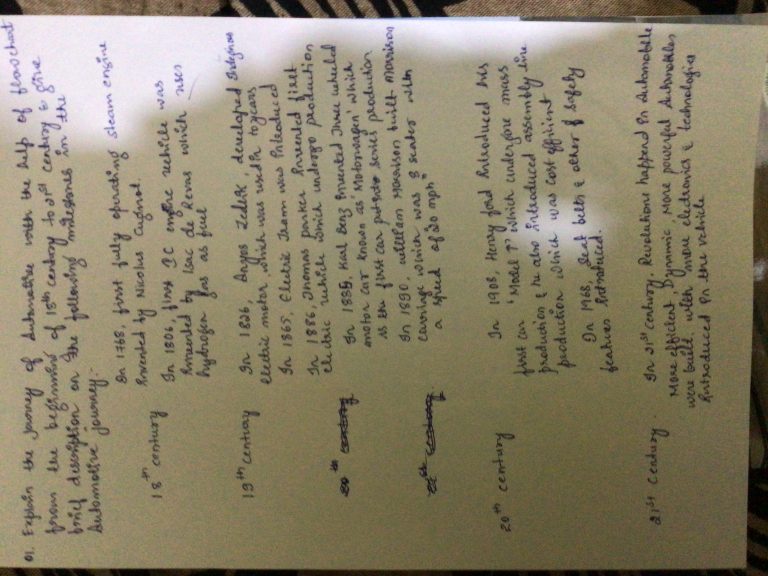 01. Explain the journey of Automotive with the help of flowchart
from the beginning of 18th century to 21st century & give
brief description on the following milestones in the
Automotive journey:-
18th century
In 1768, first fully operating steam engine
invented by Nicolus Cugnot
In 1806, first IC engine vehicle was
invented by Isac de Revas which uses
hydrogen gas as fuel
19th century
In 1826, Anyos Jedlik, developed
electric motor, which was used in
In 1865, Electric Tram was introduced
In 1886, Thomas parker invented first
electric vehicle which undergo production
20th century
In 1885, Karl Benz invented three wheeled
motor car known as 'Motorwagen' which
is the first car put into series production
In 1890, william Morrison built Morrison
carriage which was 8 seater with
a speed of 20 mph"
20th century
In 1908, Henry ford introduced his
first car 'Model T' which undergone mass
production & he also introduced assembly line
production which was cost efficient
In 1968, Seat belts & other safety
features introduced.
21st Century.
In 21st century, Revolutions happend in Automobile
More efficient, Dynamic, More powerful Automobiles
were built with more electronics & technologies
introduced in the vehicle